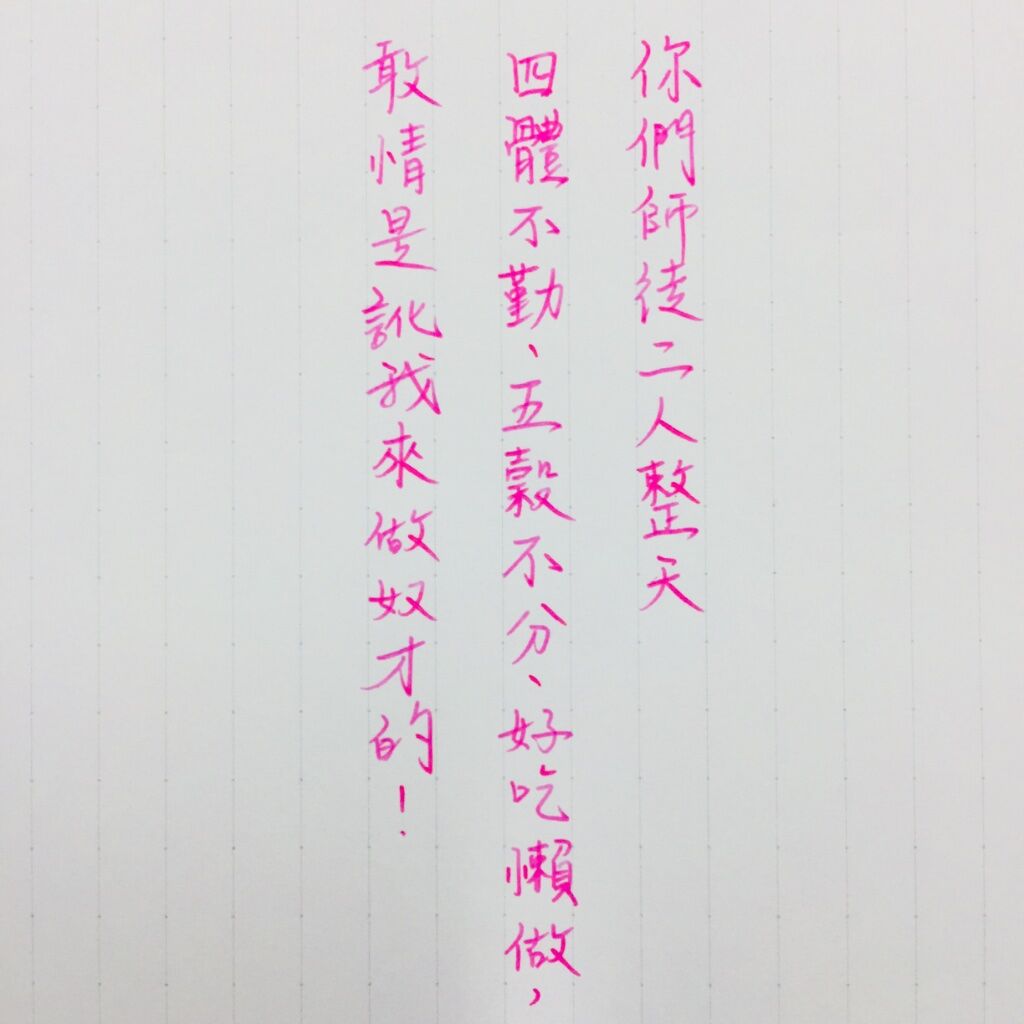 你們師徒二人整天
四體不勤、五穀不分、好吃懶做，
敢情是訛我來做奴才的！